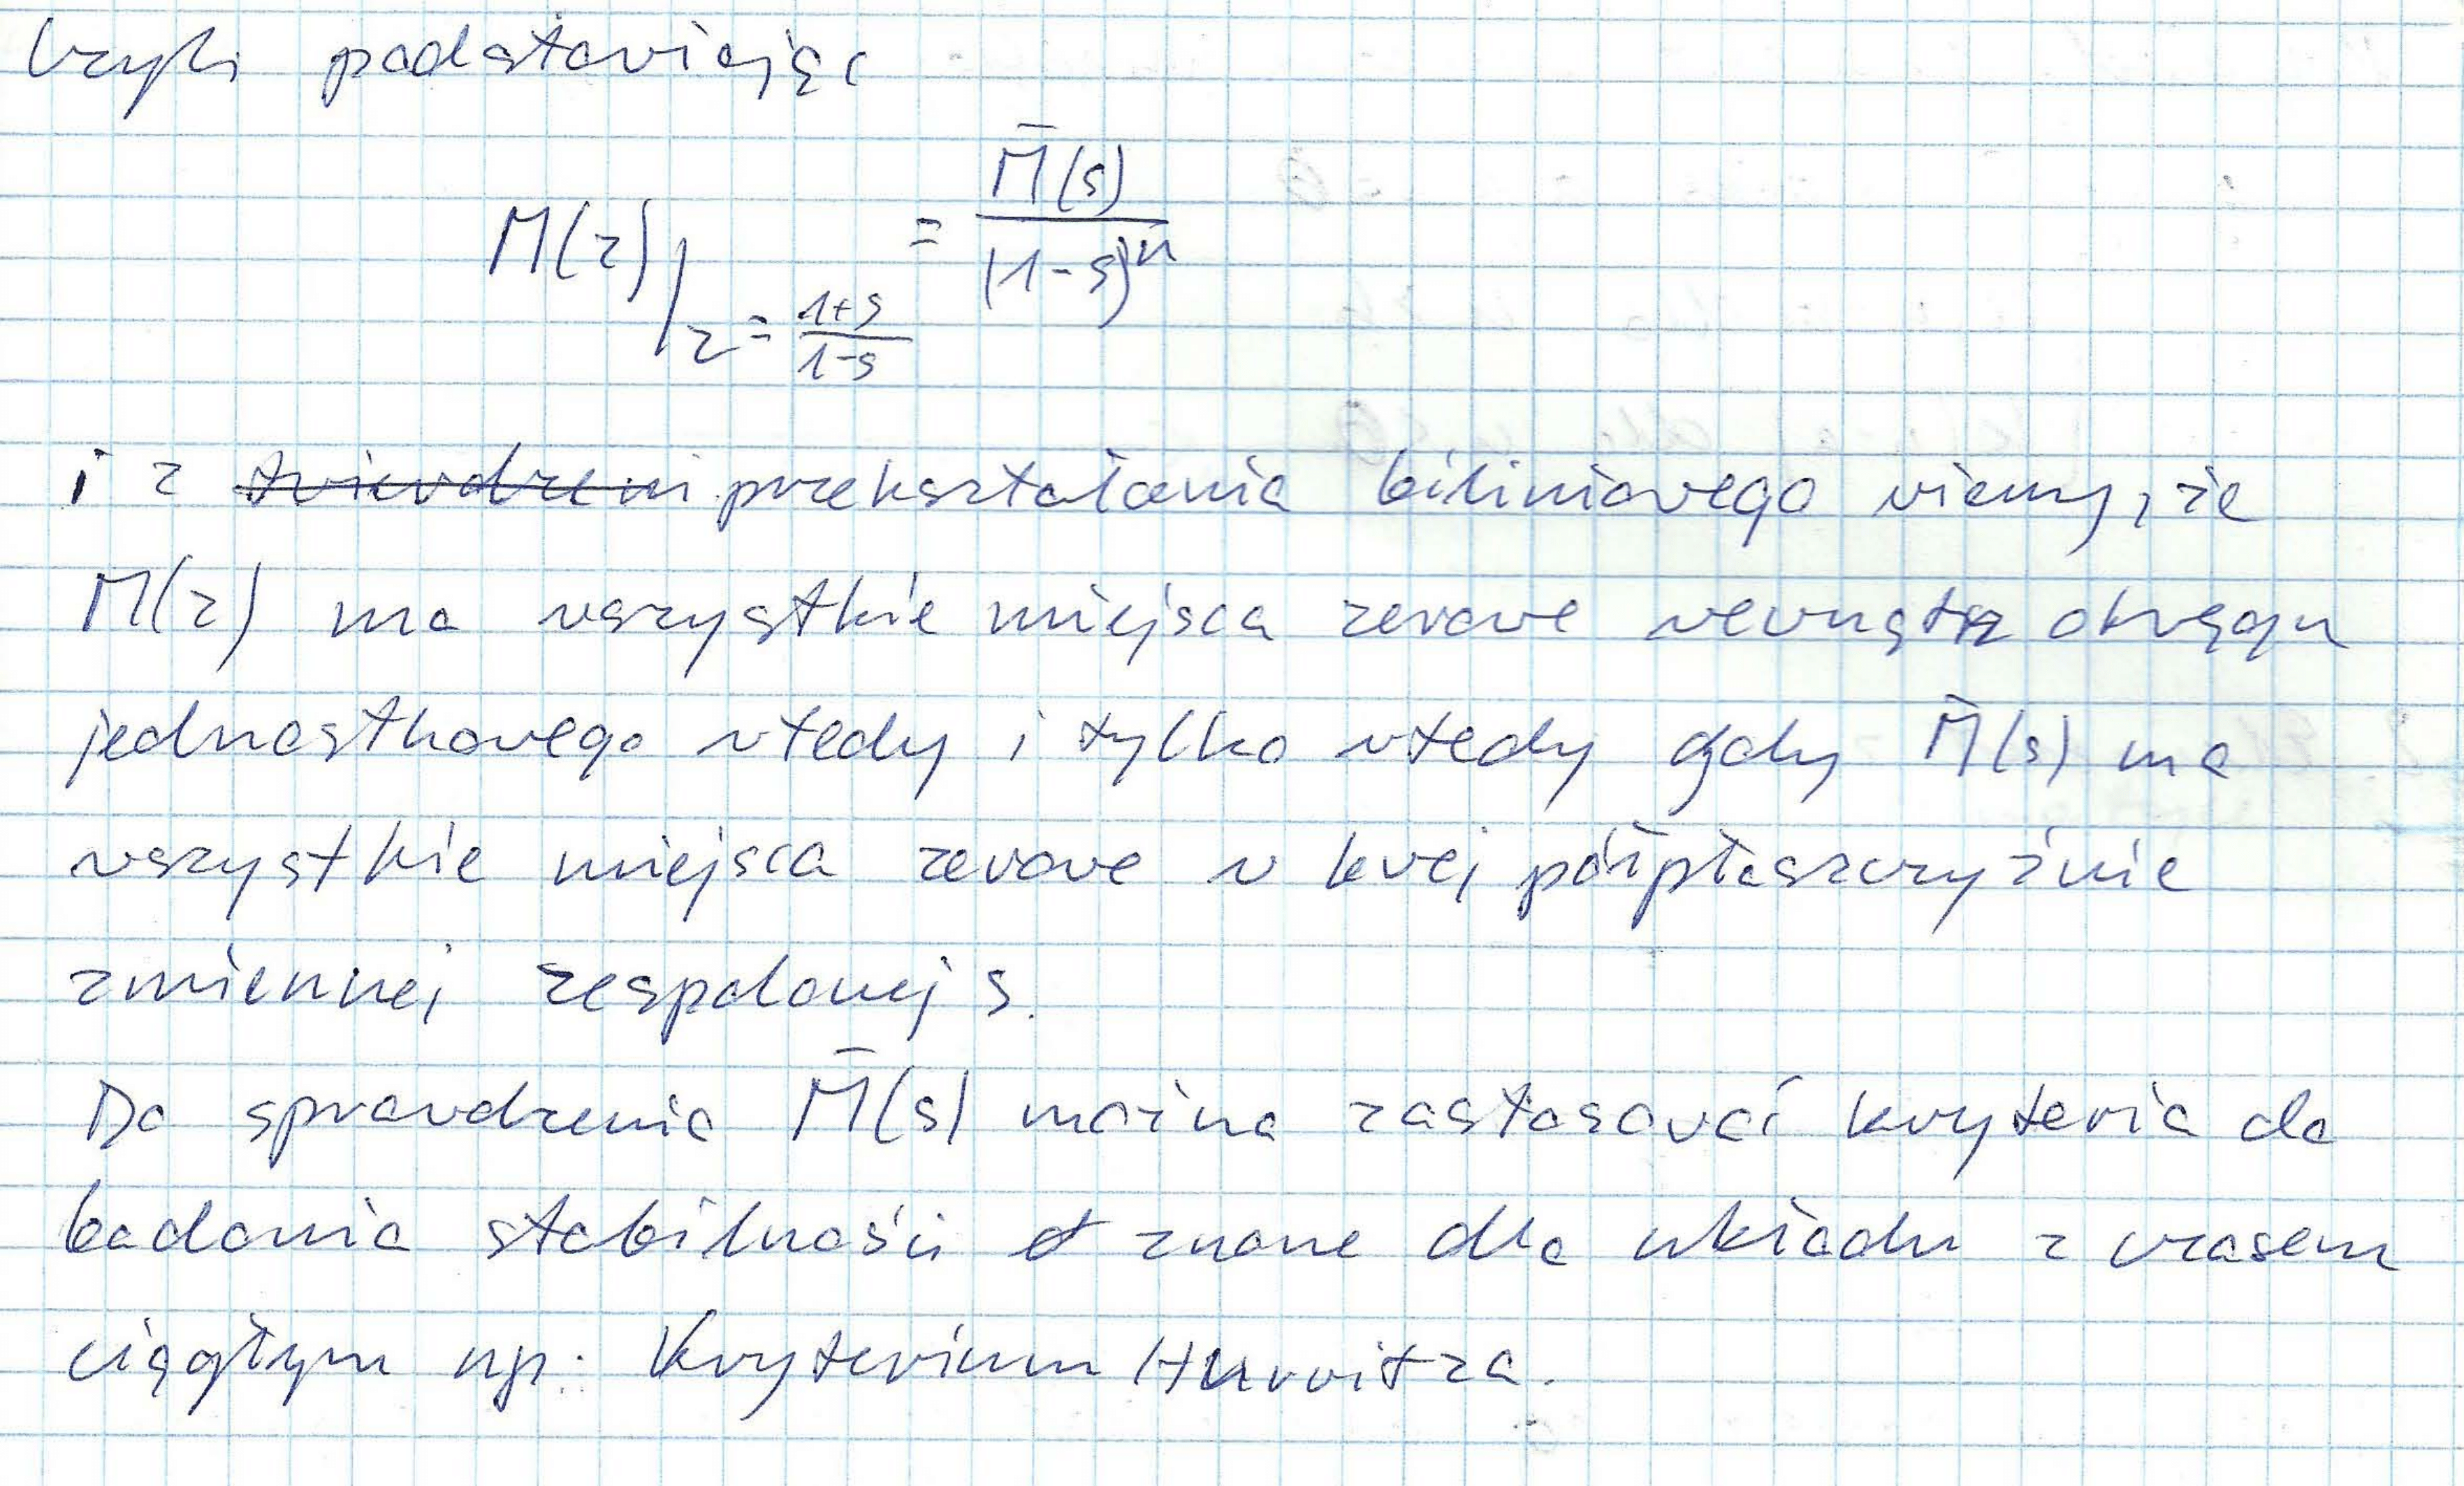 czyli podstawiając
M(z)|_{z = \frac{1+s}{1-s}} = \frac{\bar{M}(s)}{(1-s)^n}
i z ~~twierdzeni~~ przekształcenia biliniowego wiemy, że
M(z) ma wszystkie miejsca zerowe wewnątrz okręgu
jednostkowego wtedy i tylko wtedy gdy \bar{M}(s) ma
wszystkie miejsca zerowe w lewej półpłaszczyźnie
zmiennej zespolonej s.
Do sprawdzenia \bar{M}(s) można zastosować kryteria do
badania stabilności znane dla układu z czasem
ciągłym np: Kryterium Hurwitza.